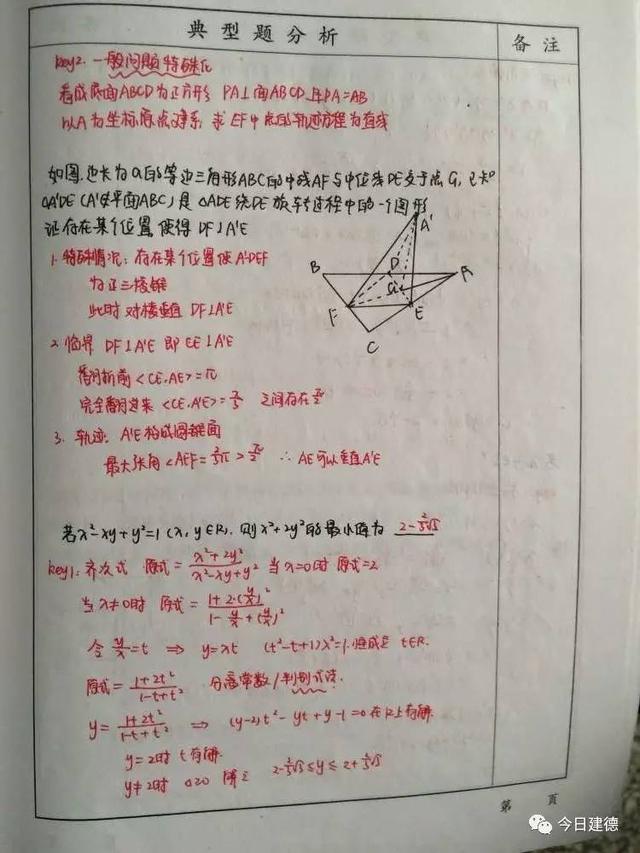 典型题分析
备注
key2. 一般问题特殊化
看成底面ABCD为正方形 PA⊥面ABCD 且PA=AB
以A为坐标原点建系, 求EF中点的轨迹方程为直线
如图, 边长为a的等边三角形ABC的中线AF与中位线DE交于点G, 已知
△A'DE (A'∉平面ABC) 是△ADE绕DE旋转过程中的一个图形
证存在某个位置使得DF⊥A'E
1. 特殊情况: 存在某个位置使A'DEF
为正三棱锥
此时对棱垂直 DF⊥A'E
2. 临界 DF⊥A'E 即 CE⊥A'E
翻折前 <CE, AE>=π
完全翻过来 <CE, A'E>=π/3 之间存在π/2
3. 轨迹: A'E构成圆锥面
最大张角<AEF=2/3π>π/2 ∴AE可以垂直A'E
A'
B
D
A
G
F
E
C
若x²-xy+y²=1 (x, y∈R), 则x²+2y²的最小值为 2-2/3√3
key1: 齐次式 原式=(x²+2y²)/(x²-xy+y²) 当x=0时 原式=2
当x≠0时 原式=(1+2·(y/x)²)/(1-y/x+(y/x)²)
令y/x=t ⇒ y=xt (t²-t+1)x²=1 恒成立 t∈R.
原式=(1+2t²)/(1-t+t²) 分离常数/判别式法.
y=(1+2t²)/(1-t+t²) ⇒ (y-2)t²-yt+y-1=0在R上有解.
y=2时 t有解.
y≠2时 △≥0 得 2-2/3√3≤y≤2+2/3√3
第 页
今日建德